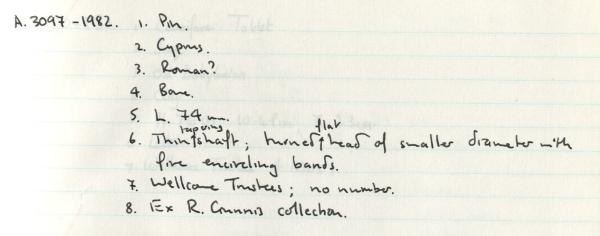 A. 3097-1982. 1. Pin.
2. Cyprus.
3. Roman?
4. Bone.
5. L. 74 mm.
6. Thin tapering shaft; turned flat head of smaller diameter with
five encircling bands.
7. Wellcome Trustees; no number.
8. Ex R. Gunnis collection.